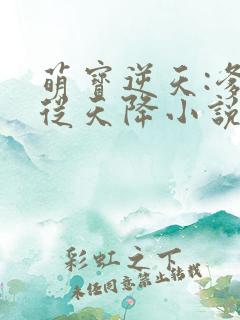 萌寶逆天:爹
從天降小說
彩虹之下
未經同意禁止轉載